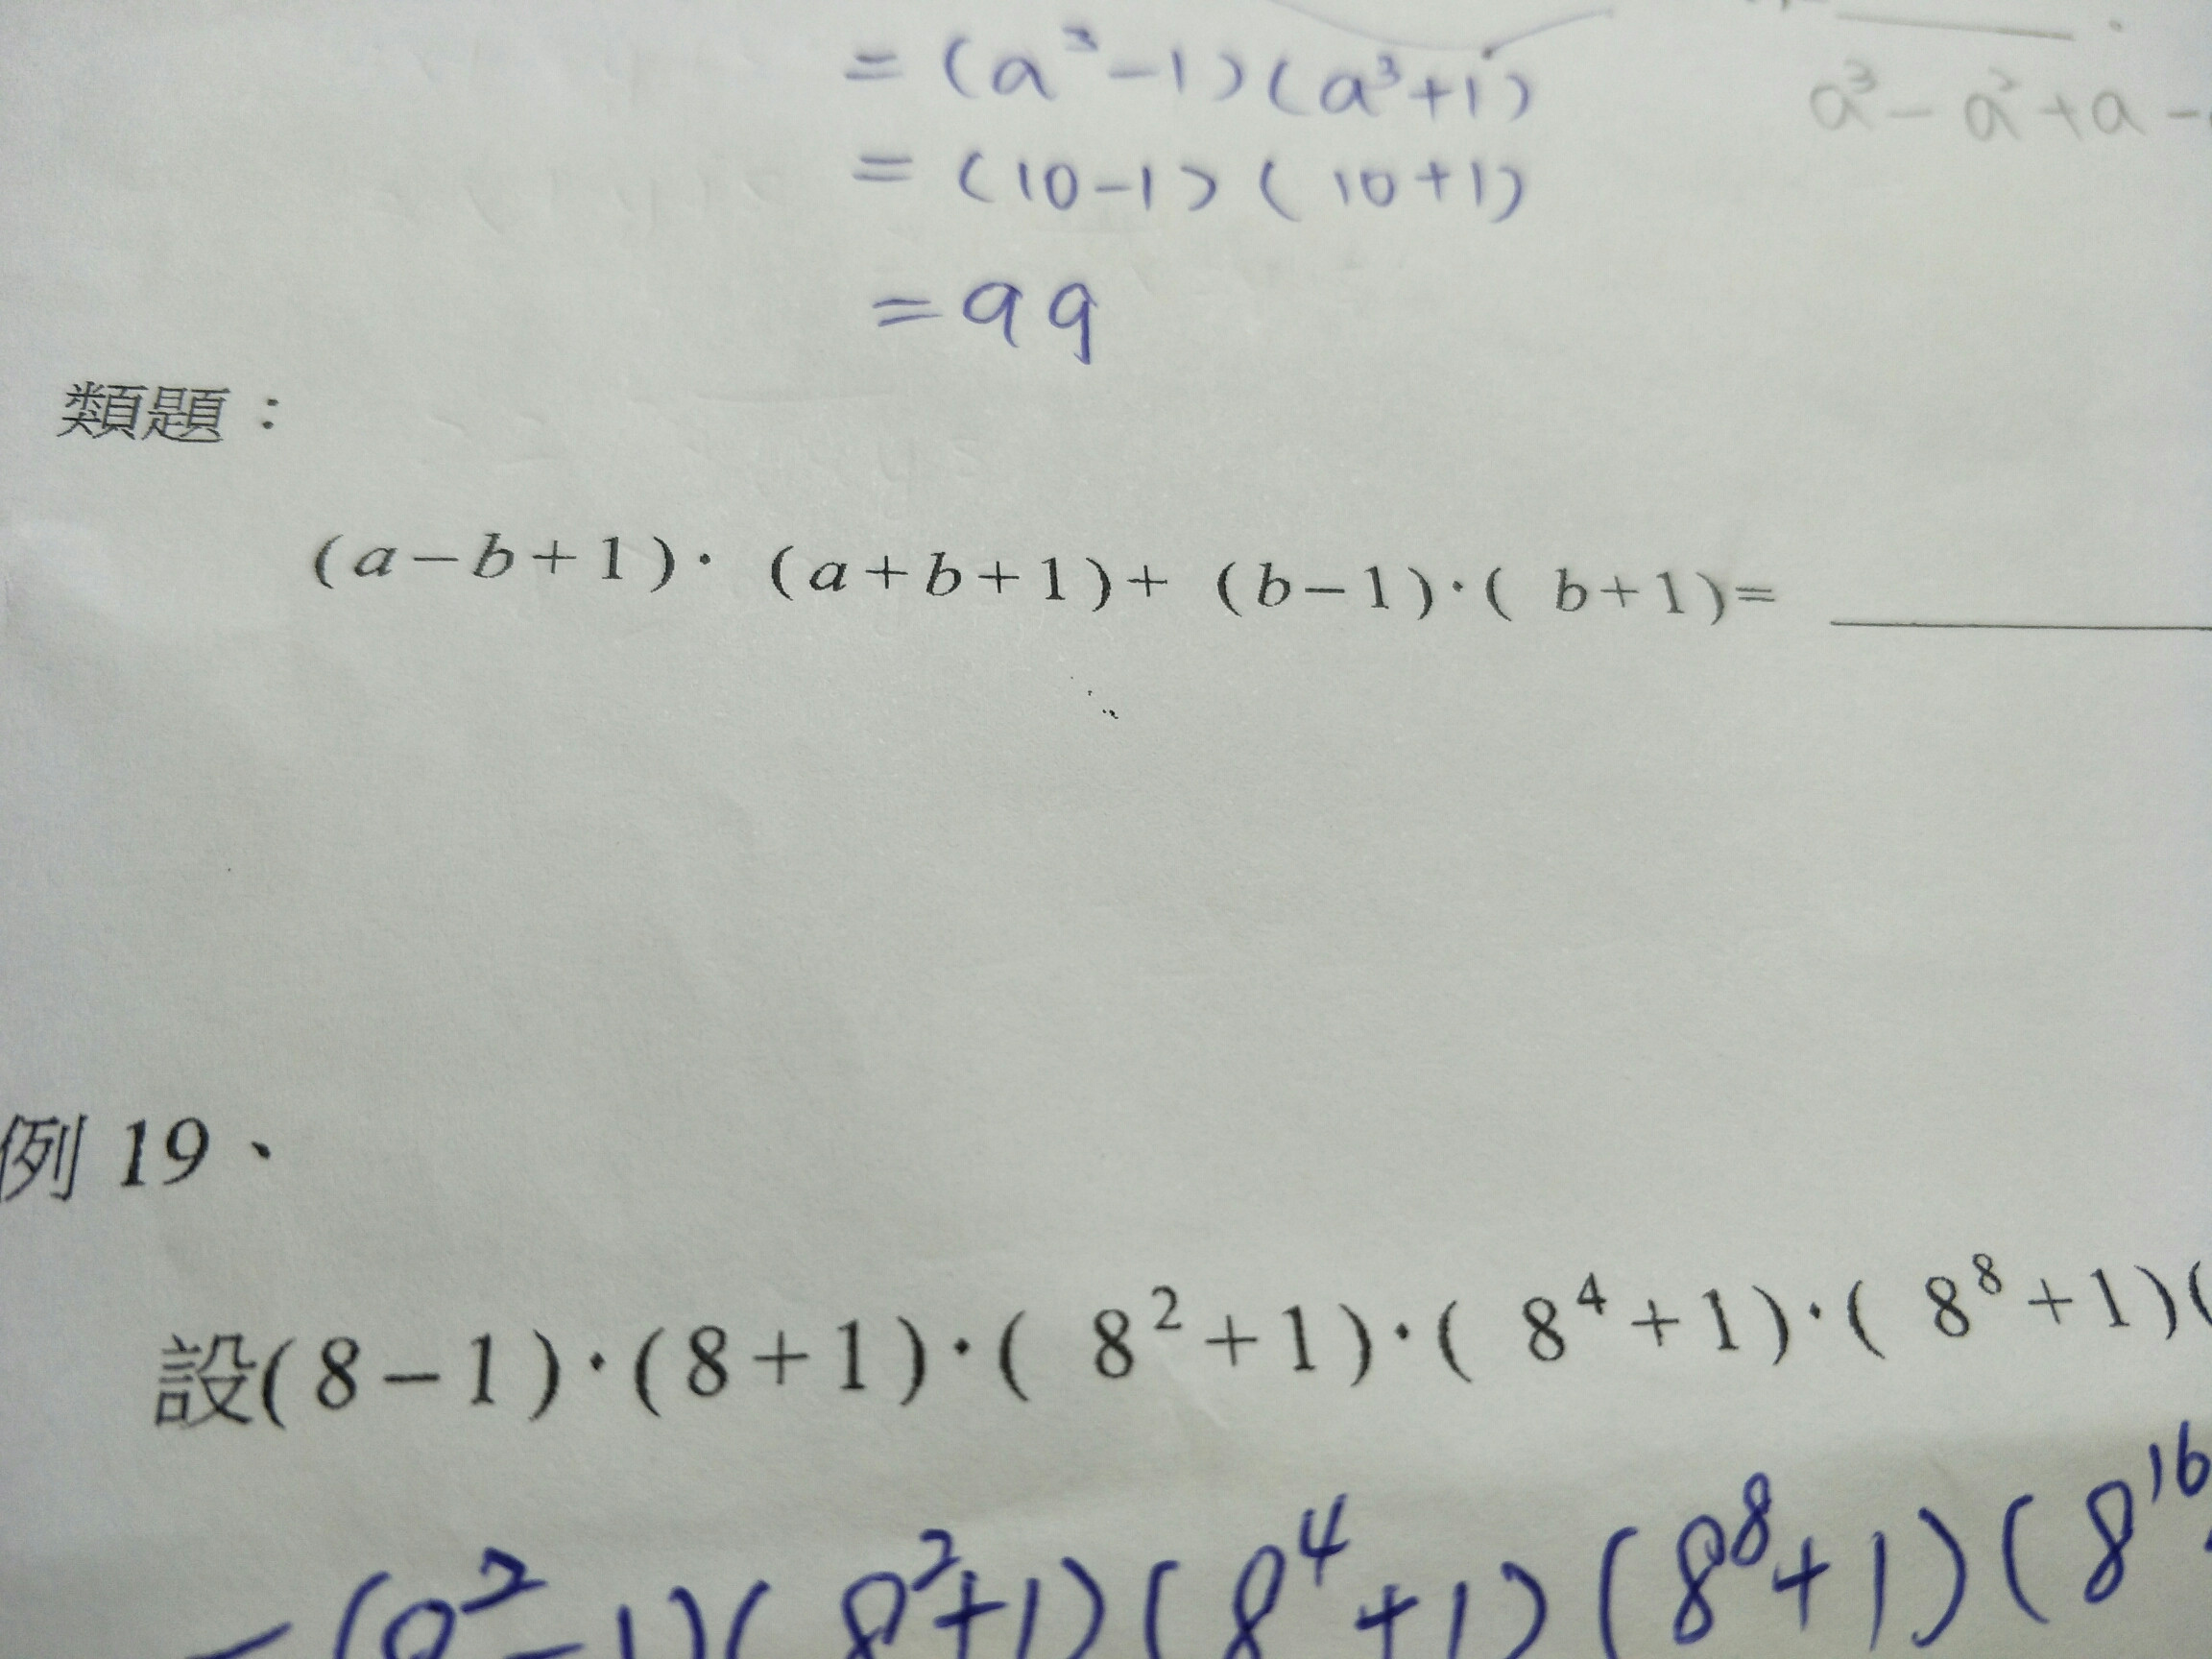 = (a³-1)(a³+1)
a³-a²+a-
= (10-1)(10+1)
= 99
類題：
(a-b+1)·(a+b+1)+(b-1)·(b+1)=
例 19、
設(8-1)·(8+1)·(8²+1)·(8⁴+1)·(8⁸+1)(
=(8²-1)(8²+1)(8⁴+1)(8⁸+1)(8¹⁶